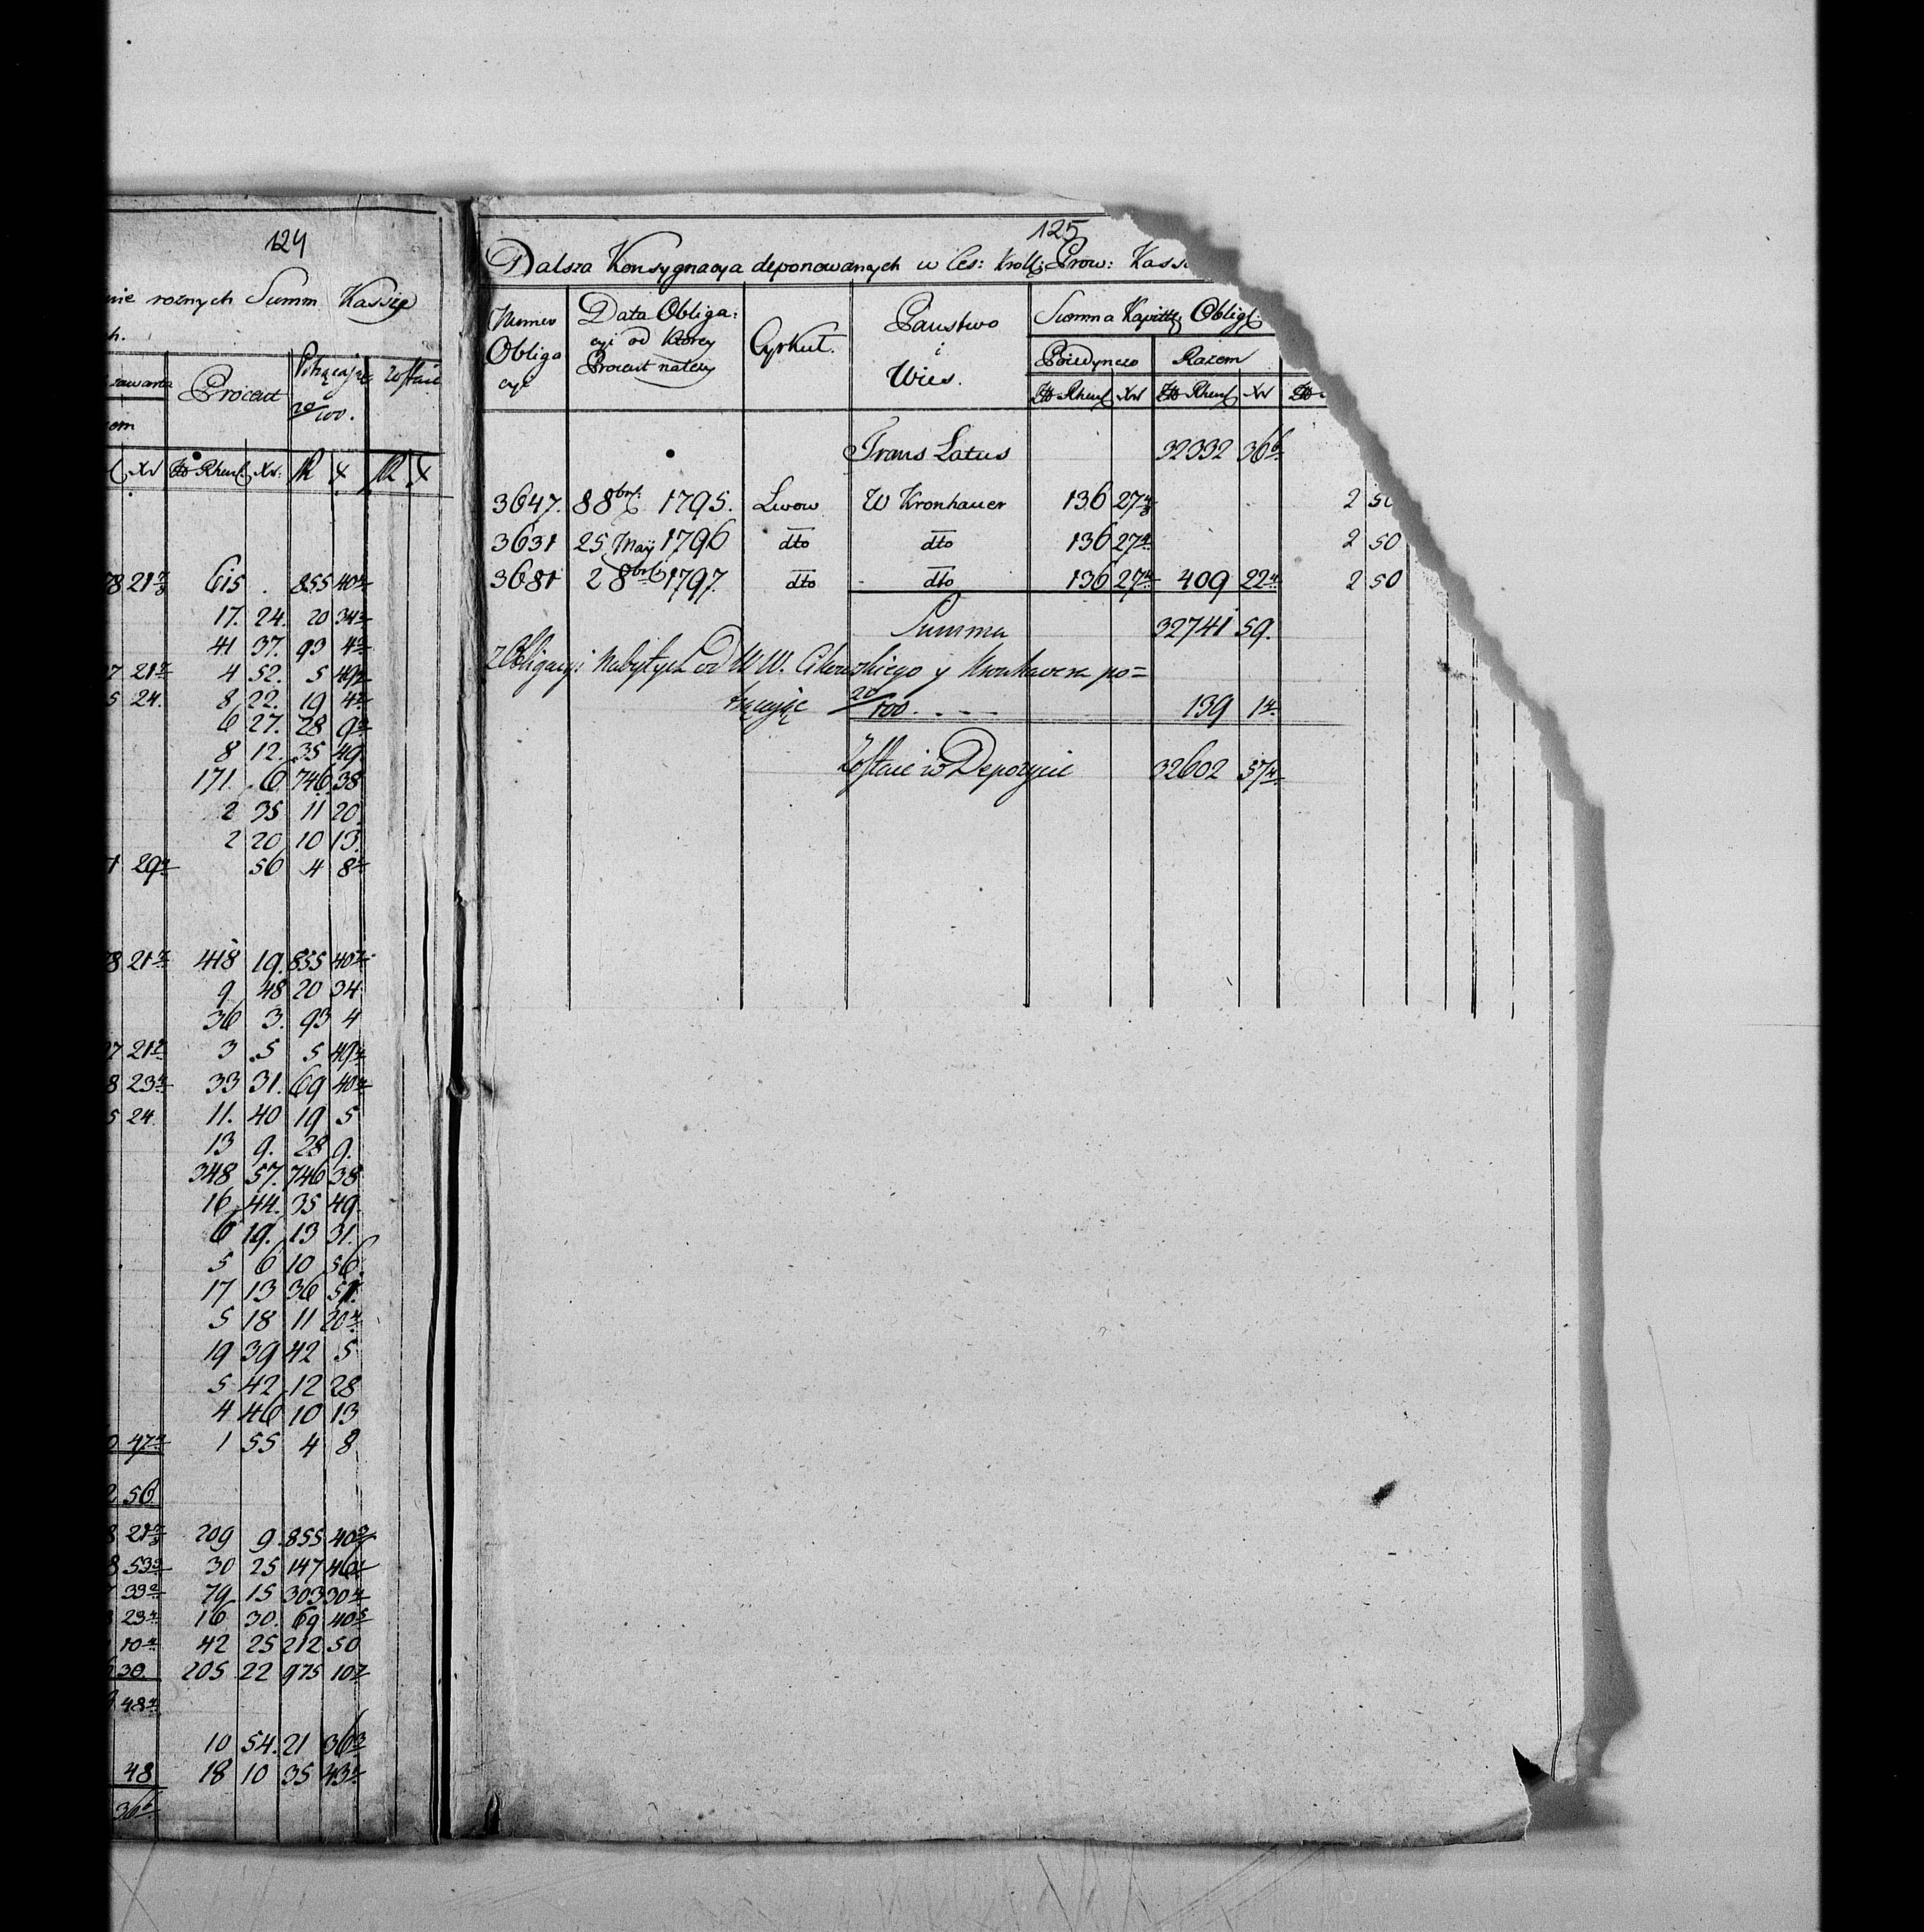 124
nie roznych Summ Kassie
h.
zawarta Procent Potrącając zostaie
om 20/100.
Xr Zło Rhensk Xr: R X R X
78 21 615 . 855 40
17. 24. 20 34
41 37. 93 4
7 21 4 52. 5 49
5 24. 8 22. 19 4
6 27. 28 9
8 12. 35 49
171. 6 746 38
2 35 11 20
2 20 10 13
1 29 56 4 8
78 21 418 19. 855 40
9 48 20 34
36 3. 93 4
27 21 3 5 5 49
8 23 33 31. 69 40
5 24. 11. 40 19 5
13 9. 28 9.
348 57. 746 38
16 44. 35 49
6 19. 13 31.
5 6 10 56
17 13 36 51.
5 18 11 20
19 39 42 5
5 42 12 28
4 46 10 13
0 47 1 55 4 8
2 56
8 21 209 9 855 40
8 53 30 25 147 46
7 39 79 15 303 30
8 23 16 30. 69 40
10 42 25 212 50
30. 205 22 975 10
48
10 54. 21 36
48 18 10 35 43
36
125
Dalsza Konsygnacya deponowanych w Ces: Kroll: Prow: Kass
Numer Obligacyi Data Obliga: cyi od ktorey Procent należy Cyrkuł. Panstwo i Wies. Summa Kapitt: Obligc:
Poiedynczo Razem
Zło Rhensk Xr Zło Rhensk Xr Zło
Trans Latus 32332 36
3647. 8 8brs 1795. Lwow W Kronhauer 136 27 2 50
3631 25 May 1796 dto dto 136 27 2 50
3681 2 8brs 1797. dto dto 136 27 409 22 2 50
Summa 32741 59.
z Obligacyi Nabytych od WW. Cikowskiego y Kronhauera po=
trącając 20/100. - - - 139 1
Zostaie w Depozycie 32602 57